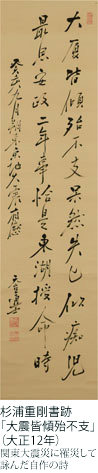 大厦皆傾殆不支呆然失心似痴児
最思安政二年事恰是東湖授命時
癸亥九月
杉浦重剛書跡
「大震皆傾殆不支」
（大正12年）
関東大震災に罹災して
詠んだ自作の詩